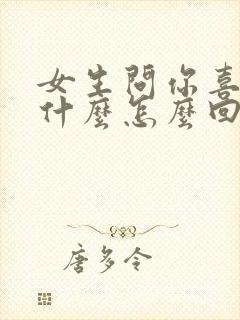 女生問你喜
什麼怎麼回
唐多令